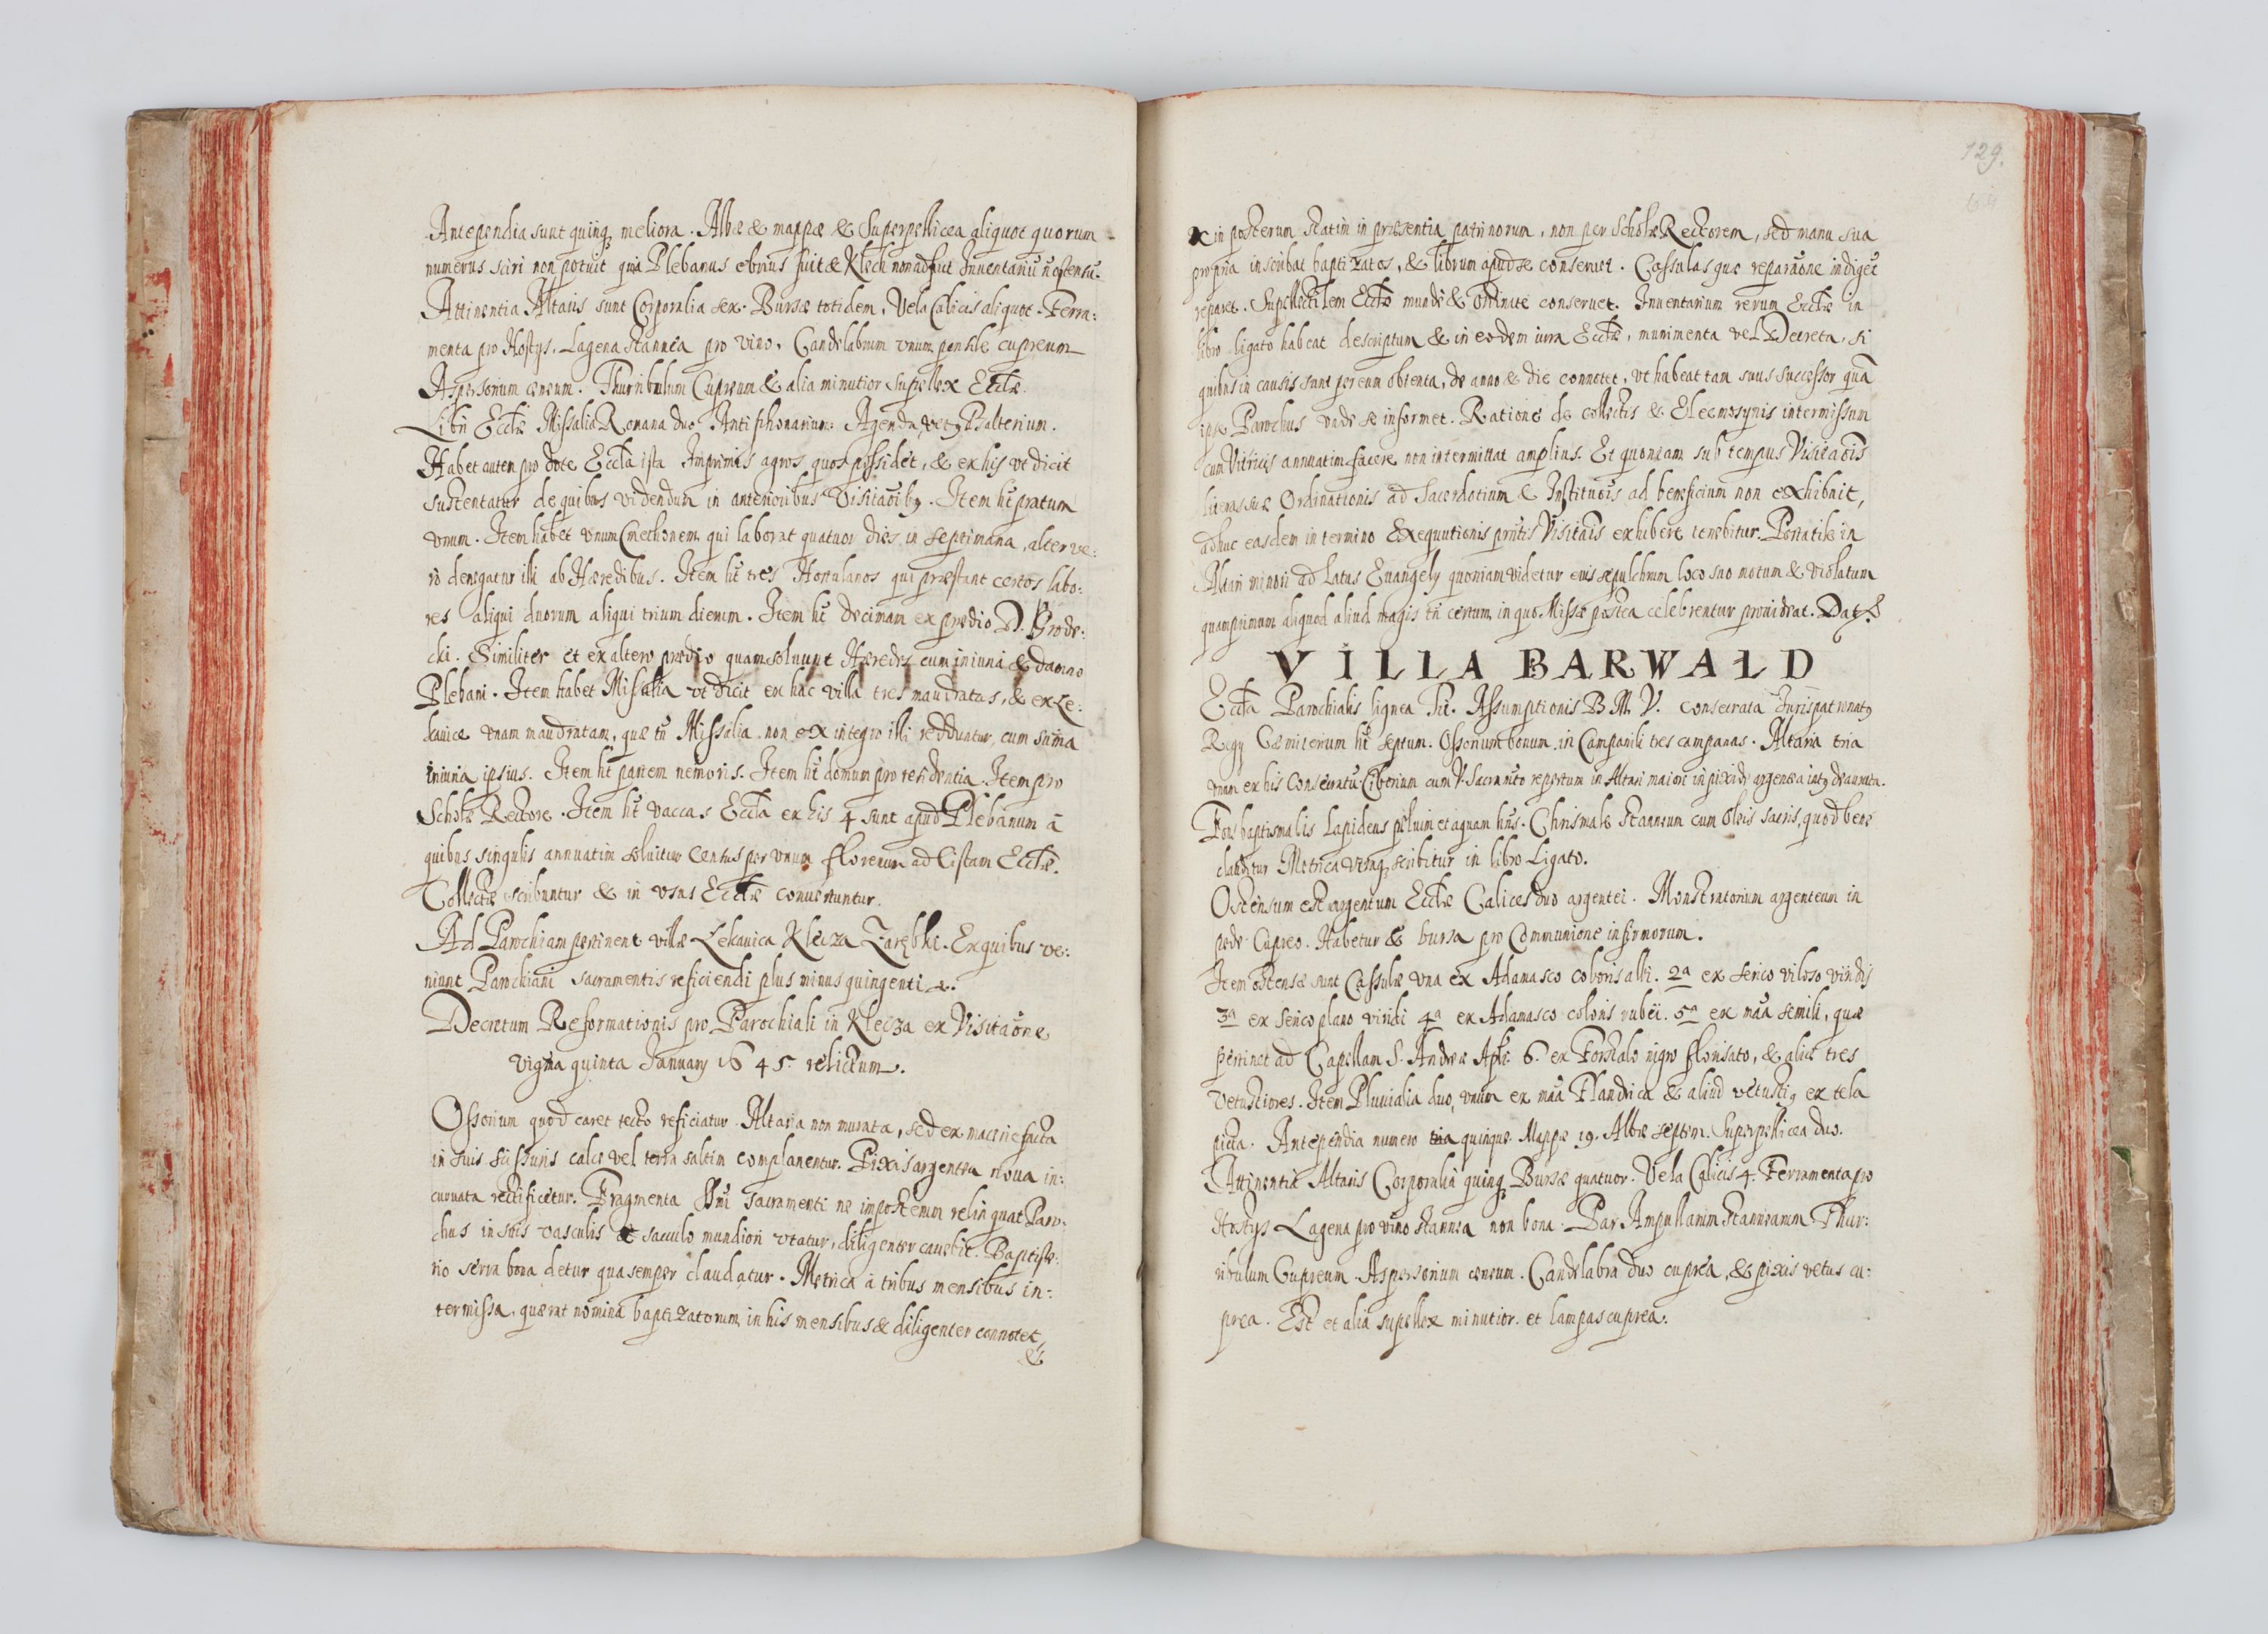 Antependia sunt quinq. meliora. Albæ & mappæ & Superpellicea aliquot quorum
numerus sciri non potuit quia Plebanus ebrius fuit & Klech non adfuit Inuentariũ ñ ostensũ.
Attinentia Altaris sunt Corporalia sex. Bursæ totidem. Vela Calicis aliquot. Ferra:
menta pro Hostys. Lagena stannea pro vino. Candelabrum vnum pensile cupreum
Aspersorium æneum. Thuribulum Cupreum & alia minutior supellex Ecclæ.
Libri Ecclæ Missalia Romana duo Antiphonarium: Agenda, vetq Psalterium.
Habet autem pro dote Eccla ista Imprimis agros quos possidet, & ex his vt dicit
sustentatur de quibus videndum in anterioribus Visitaõibq. Item ht pratum
vnum. Item habet vnum Cmethonem qui laborat quatuor dies in septimana, alter ve:
rò denegatur illi ab Hæredibus. Item ht tres Hortulanos qui præstant certos labo:
res aliqui duorum aliqui trium dierum. Item ht decimam ex prædio D. Brode:
cki. Similiter et ex altero prædio quam soluunt Hæredes cum iniuria & damno
Plebani. Item habet Missalia vt dicit ex hac villa tres maudratas, & ex Le:
kauice vnam maudratam, quæ tñ Missalia non ex integro illi redduntur, cum suma
iniuria ipsius. Item ht partem nemoris. Item ht domum pro residentia. Item pro
Scholæ Rectore. Item ht vaccas Eccla ex his 4 sunt apud Plebanum à
quibus singulis annuatim soluitur Census per vnum florenum ad Cistam Ecclæ.
Collectæ scribuntur & in vsus Ecclæ conuertuntur.
Ad Parochiam pertinent villæ Lekauica Klecza Zarębki. Ex quibus ve:
niunt Parochiani sacramentis reficiendi plus minus quingenti
Decretum Reformationis pro Parochiali in Klecza ex Visitaõne
vigma quinta January 1645. relictum.
Ossorium quod caret tecto reficiatur. Altaria non murata, sed ex macerie facta
in suis scissuris calce vel terra saltim complanentur. Pixis argentea noua in:
curuata rectificetur. Fragmenta Ssmi Sacramenti ne imposterum relinquat Paro:
chus in suis vasculis & sacculo mundiori vtatur, diligenter cauebit. Baptiste:
rio serra bona detur qua semper claudatur. Metrica à tribus mensibus in:
termissa, quærat nomina baptizatorum in his mensibus & diligenter connotet,
&
129.
& in posterum statim in præsentia patrinorum, non per Scholæ Rectorem, sed manu sua
propria inscribat baptizatos, & librum apud se conseruet. Cassulas quæ reparaõne indiget
reparet. Supellectilem Ecclæ mundè & ordinatè conseruet. Inuentarium rerum Ecclæ in
libro ligato habeat descriptum & in eodem iura Ecclæ, munimenta vel Decreta, si
quibus in causis sunt per eum obtenta, de anno & die connotet, vt habeat tam suus successor quã
ipse Parochus vnde se informet. Rationẽ de collectis & Eleemosynis intermissam
cum Vitricis annuatim facere non intermittat amplius. Et quoniam sub tempus Visitaõis
literas suæ Ordinationis ad Sacerdotium & Institutõis ad beneficium non exhibuit,
adhuc easdem in termino Exequutionis pñtis Visitaõis exhibere tenebitur. Portatile in
Altari minori ad Latus Euangely quoniam videtur eius sepulchrum loco suo motum & violatum
quamprimum aliquod aliud magis tñ certum in quo Missæ postea celebrentur prouideat. Dat.
VILLA BARWAŁD
Eccla Parochialis lignea Tit. Assumptionis B. M. V. consecrata Jurispatronatq
Regy Cæmiterium ht septum. Ossorium bonum in Campanili tres campanas. Altaria tria
vnum ex his Consecratũ. Ciborium cum V. Sacramẽto repertum in Altari maiori in pixide argentea intq deaurata.
Fons baptismalis Lapideus peluim et aquam hñs. Chrismale stanneum cum Oleis sacris, quod bene
clauditur Metrica vtraq scribitur in libro Ligato.
Ostensum est argentum Ecclæ Calices duo argentei. Monstratorium argenteum in
pede Cupreo. Habetur & bursa pro Communione infirmorum.
Item ostensæ sunt Cassulæ vna ex Adamasco coloris albi. 2a ex serico viloso viridis
3a ex serico plano viridi 4a ex Adamasco coloris rubei. 5a ex mãa simili, quæ
pertinet ad Capellam S. Andreæ Apli. 6. ex Forstato nigro florisato, & aliæ tres
vetustiores. Item Pluuialia duo, vnum ex mãa Flandrica & aliud vetustiq ex tela
picta. Antependia numero tria quinque. Mappæ 19. Albæ septem. Superpellicea duo.
Attinentia Altaris Corporalia quinq Bursæ quatuor. Vela Calicis 4. Ferramenta pro
Hostys Lagena pro vino stannea non bona. Par Ampullarum stannearum Thur:
ribulum Cupreum. Aspersorium æneum. Candelabra duo cuprea, & pixis vetus cu:
prea. Est et alia supellex minutior. et lampas cuprea.